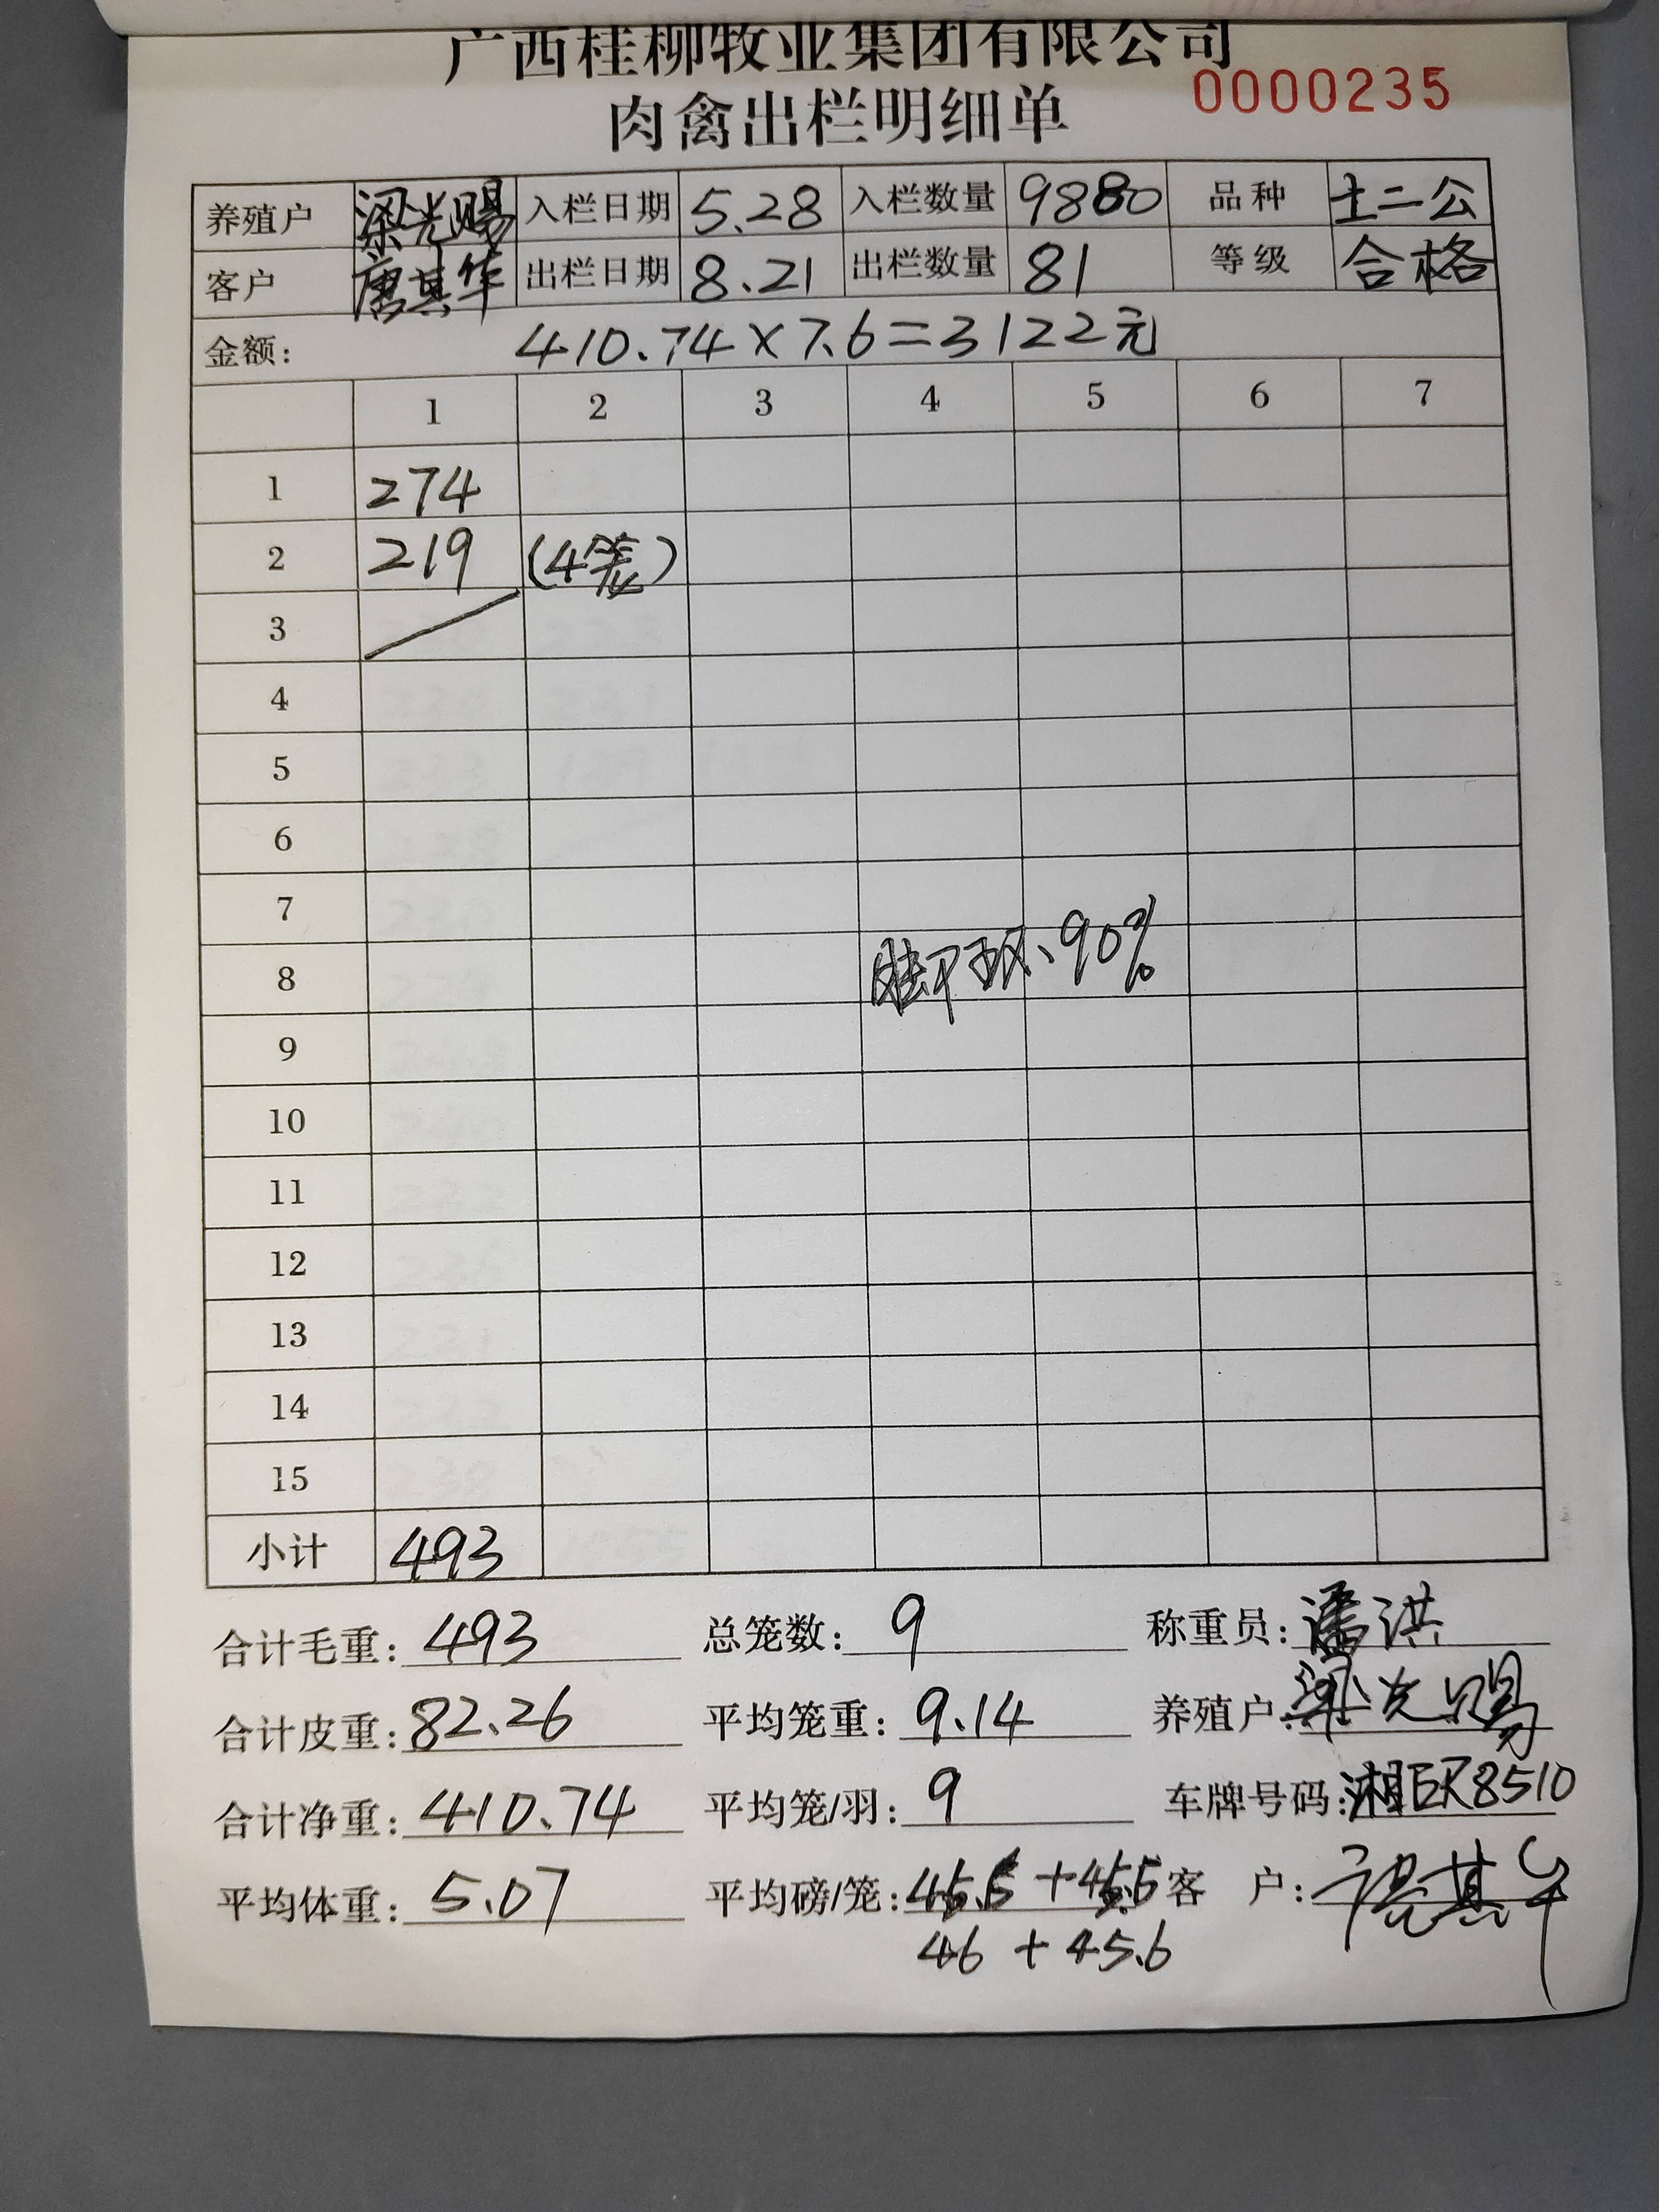 广西桂柳牧业集团有限公司
0000235
肉禽出栏明细单
养殖户 梁光赐 入栏日期 5.28 入栏数量 9880 品种 土二公
客户 唐其华 出栏日期 8.21 出栏数量 81 等级 合格
金额: 410.74×7.6=3122元
1 2 3 4 5 6 7
1 274
2 219 (4笼)
3
4
5
6
7
8 脚环、90%
9
10
11
12
13
14
15
小计 493
合计毛重: 493 总笼数: 9 称重员: 潘洪
合计皮重: 82.26 平均笼重: 9.14 养殖户: 梁光赐
合计净重: 410.74 平均笼/羽: 9 车牌号码: 湘ER8510
平均体重: 5.07 平均磅/笼: 45.5+45.5 客 户: 唐其华
46+45.6